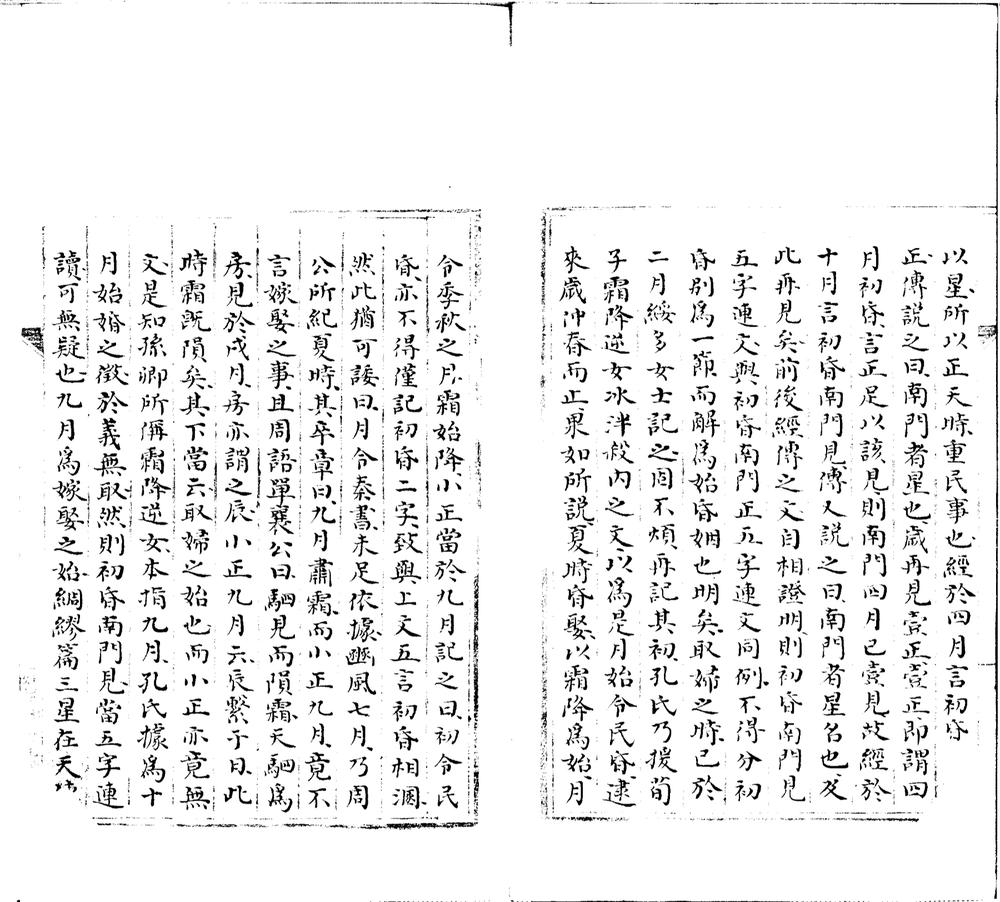 以星所以正天時重民事也經於四月言初昏
正傳說之曰南門者星也歲再見壹正壹正即謂四
月初昏言正足以該見則南門四月已壹見故經於
十月言初昏南門見傳又說之曰南門者星名也及
此再見矣前後經傳之文自相證明則初昏南門見
五字連文與初昏南門正五字連文同例不得分初
昏別為一節而解為始昏姻也明矣取婦之時已於
二月綏多女士記之固不煩再記其初孔氏乃援荀
子霜降逆女冰泮殺內之文以為是月始令民昏逮
來歲仲春而止果如所說夏時昏娶以霜降為始月
令季秋之月霜始降小正當於九月記之曰初令民
昏亦不得僅記初昏二字致與上文五言初昏相溷
然此猶可諉曰月令秦書未足依據豳風七月乃周
公所紀夏時其卒章曰九月肅霜而小正九月竟不
言嫁娶之事且周語單襄公曰駟見而隕霜天駟為
房見於戌月房亦謂之辰小正九月云辰繫于日此
時霜既隕矣其下當云取婦之始也而小正亦竟無
文是知孫卿所偁霜降逆女本指九月孔氏據為十
月始婚之徵於義無取然則初昏南門見當五字連
讀可無疑也九月為嫁娶之始綢繆篇三星在天